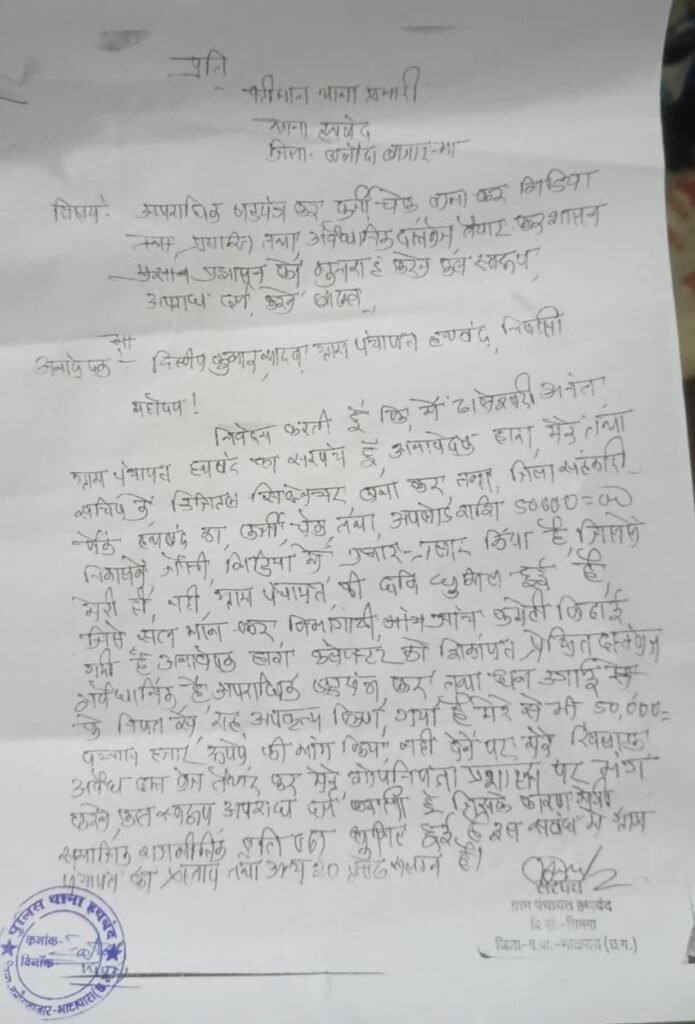 प्रति
श्रीमान थाना प्रभारी
थाना हथबंद
जिला- बलौदा बाजार-भा
विषय: अपराधिक षडयंत्र कर फर्जी चेक बना कर मिडिया
प्रसारित तथा अवैधानिक दस्तावेज तैयार कर शासन
प्रशासन को गुमराह करने एवं स्वरूप
अपराध दर्ज करने बाबत्
अनावेदक :- दिलीप कुमार यादव ग्राम पंचायत हथबंद, निवासी
महोदय!
निवेदन करती हूँ कि, मैं राजेश्वरी अनंत
ग्राम पंचायत हथबंद का सरपंच हूँ, अनावेदक द्वारा, मेरे तथा
सचिव के डिजिटल सिग्नेचर बना कर तथा, जिला सहकारी
बैंक हथबंद का, फर्जी चेक तथा, राशि 50000=00
मिडिया में प्रचार-प्रसार किया है, जिससे
मेरी ही, नहीं, ग्राम पंचायत की छवि धूमिल हुई है,
जिसे सत्य मान कर विभागीय जांच कमेटी बिठाई
गयी है अनावेदक द्वारा कलेक्टर को शिकायत प्रेषित दस्तावेज
अवैधानिक है अपराधिक षडयंत्र कर तथा धन उगाई
के नियत से, यह अपकृत्य किया, गया है मेरे से भी 50,000=
पचास हजार रूपये की मांग किया, नहीं देने पर मेरे खिलाफ
अवैध दस्तावेज तैयार कर मेरे गोपनियता भंग
करने, स्वरूप अपराध दर्ज है जिसके कारण मेरी
सामाजिक राजनीतिक धूमिल हुई है इस संबंध में ग्राम
पंचायत का प्रस्ताव तथा अन्य 20 संलग्न है।
सरपंच
ग्राम पंचायत हथबंद
वि.ख.-सिमगा
जिला-ब.बा.-भाटापारा (छ.ग.)
पुलिस थाना हथबंद
क्रमांक-
दिनांक-
बलौदाबाजार-भाटापारा